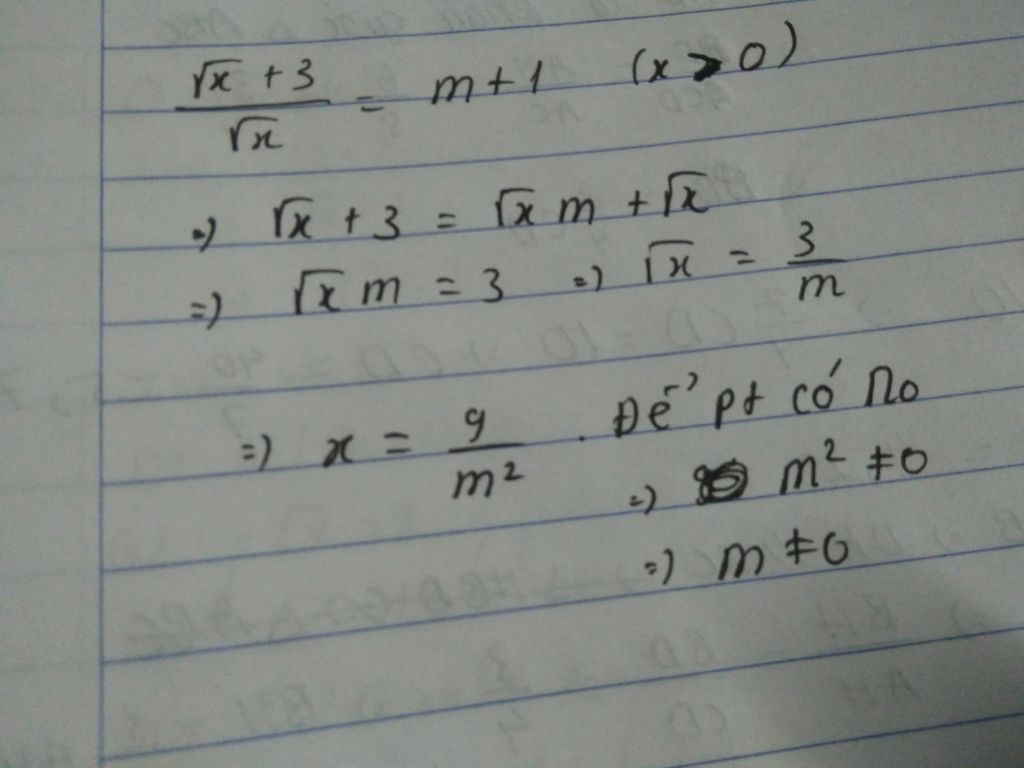 (√x + 3)/√x = m + 1 (x > 0)
=) √x + 3 = √x m + √x
=) √x m = 3 =) √x = 3/m
=) x = 9/m² . Để pt có no
=) m² ≠ 0
=) m ≠ 0